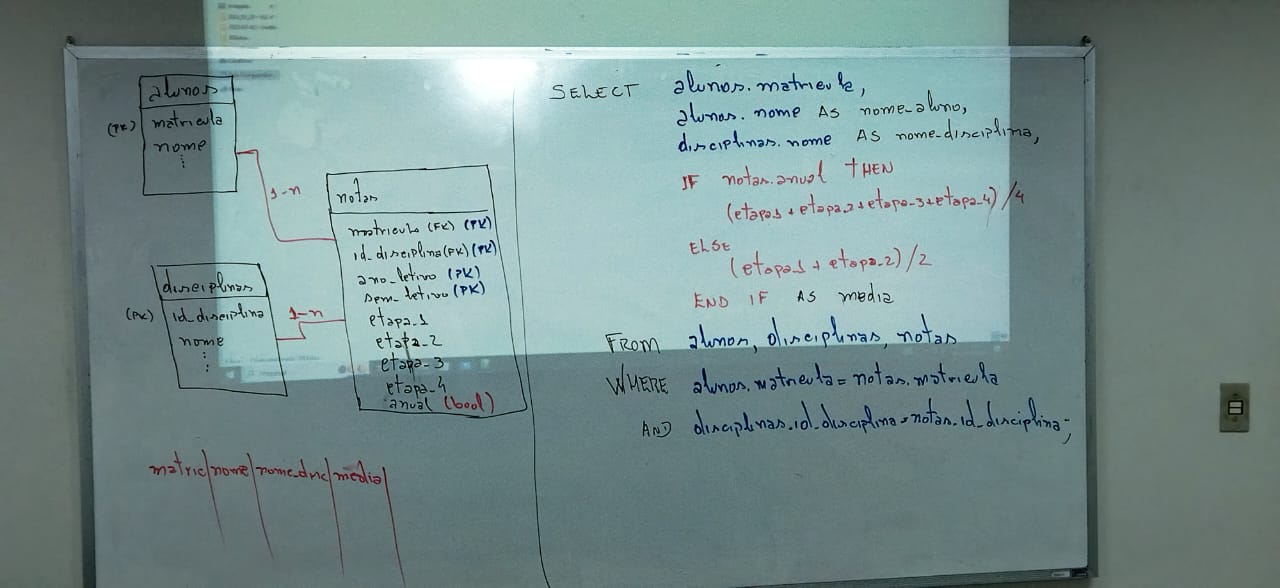 alunos
(PK) matricula
nome
1-n
notas
matricula (FK) (PK)
id_disciplina (FK) (PK)
ano_letivo (PK)
sem_letivo (PK)
etapa_1
etapa_2
etapa_3
etapa_4
anual (bool)
disciplinas
(PK) id_disciplina
nome
1-n
matric nome nome_disc media
SELECT alunos.matricula,
alunos.nome AS nome_aluno,
disciplinas.nome AS nome_disciplina,
IF notas.anual THEN
(etapa_1 + etapa_2 + etapa_3 + etapa_4) / 4
ELSE
(etapa_1 + etapa_2) / 2
END IF AS media
FROM alunos, disciplinas, notas
WHERE alunos.matricula = notas.matricula
AND disciplinas.id_disciplina = notas.id_disciplina;